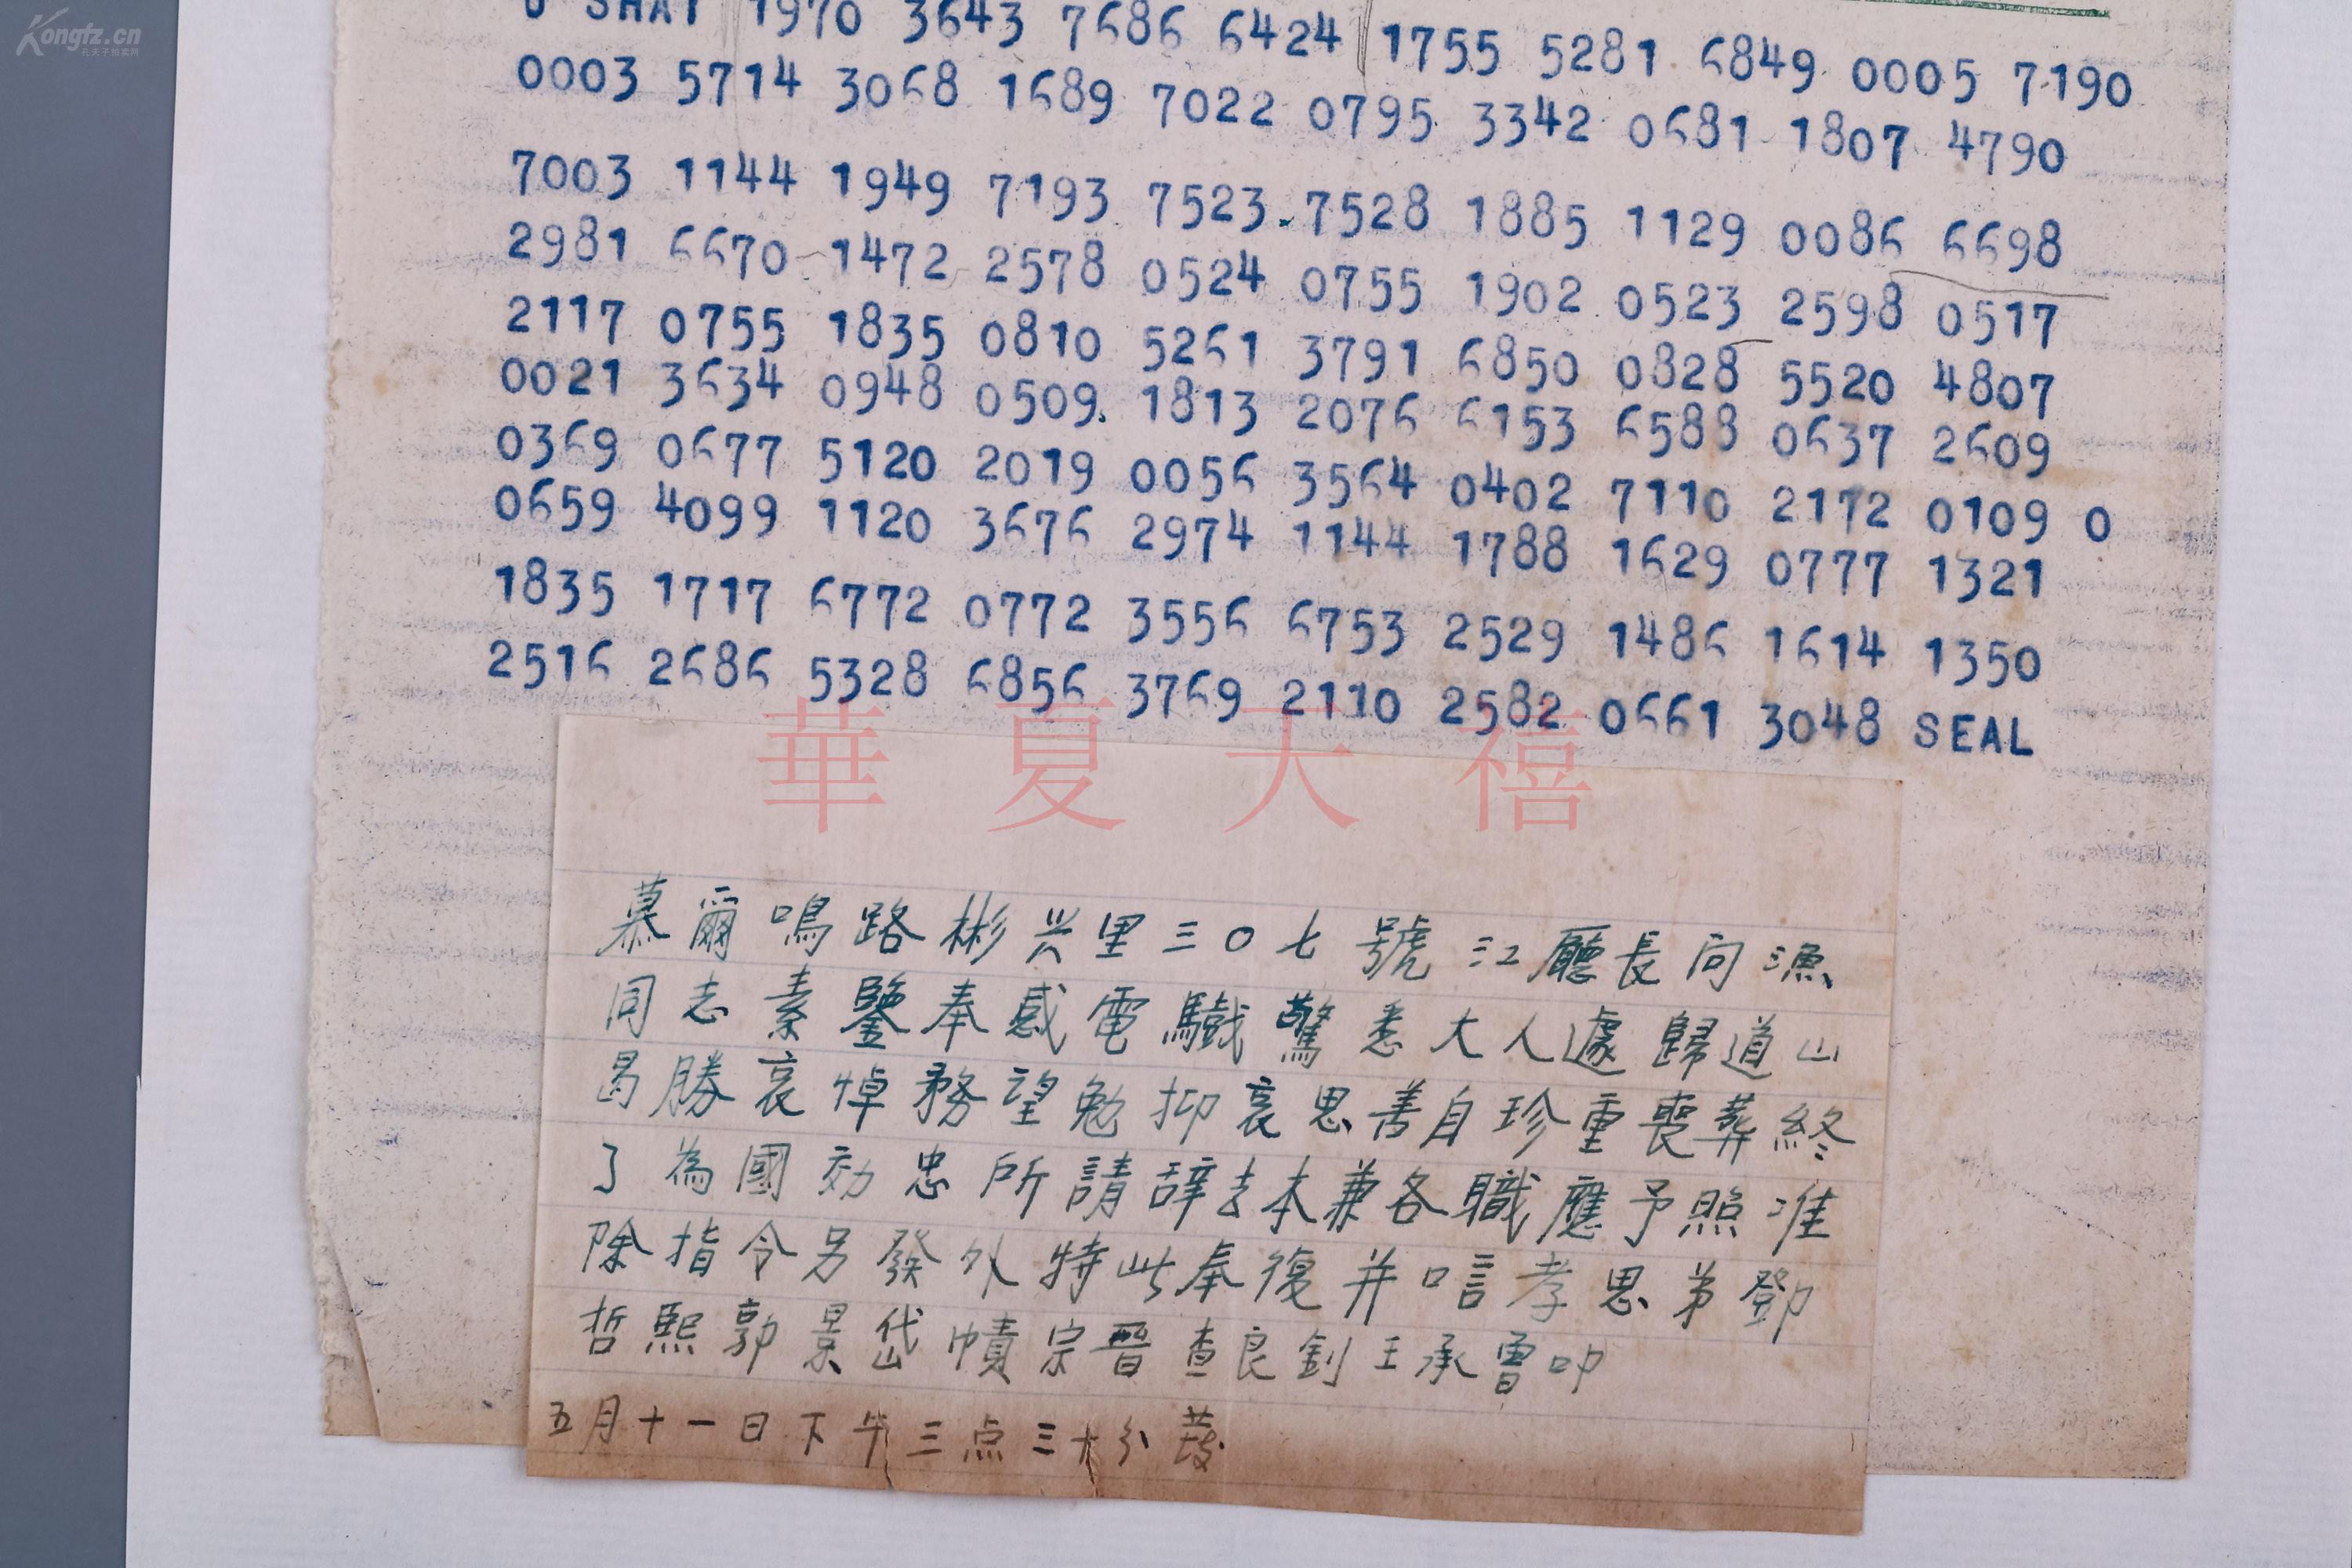 Kongfz.cn
孔夫子拍卖网
SHAT 1970 3643 7686 6424 1755 5281 6849 0005 7190
0003 5714 3068 1689 7022 0795 3342 0681 1807 4790
7003 1144 1949 7193 7523 7528 1885 1129 0086 6698
2981 6670 1472 2578 0524 0755 1902 0523 2598 0517
2117 0755 1835 0810 5261 3791 6850 0828 5520 4807
0021 3634 0948 0509 1813 2076 6153 6588 0637 2609
0369 0677 5120 2019 0056 3564 0402 7110 2172 0109 0
0659 4099 1120 3676 2974 1144 1788 1629 0777 1321
1835 1717 6772 0772 3556 6753 2529 1486 1614 1350
2516 2686 5328 6856 3769 2110 2582 0661 3048 SEAL
華夏天禧
慕爾鳴路彬兴里三〇七號江廳長向漁
同志素鑒奉感電驖驚悉大人遽歸道山
曷勝哀悼務望勉抑哀思善自珍重喪葬終
了為國効忠所請辞去本兼各職應予照准
除指令另發外特此奉復并唁孝思弟鄧
哲熙郭景岱幘宗晋查良釗王承曾叩
五月十一日下午三点三十分